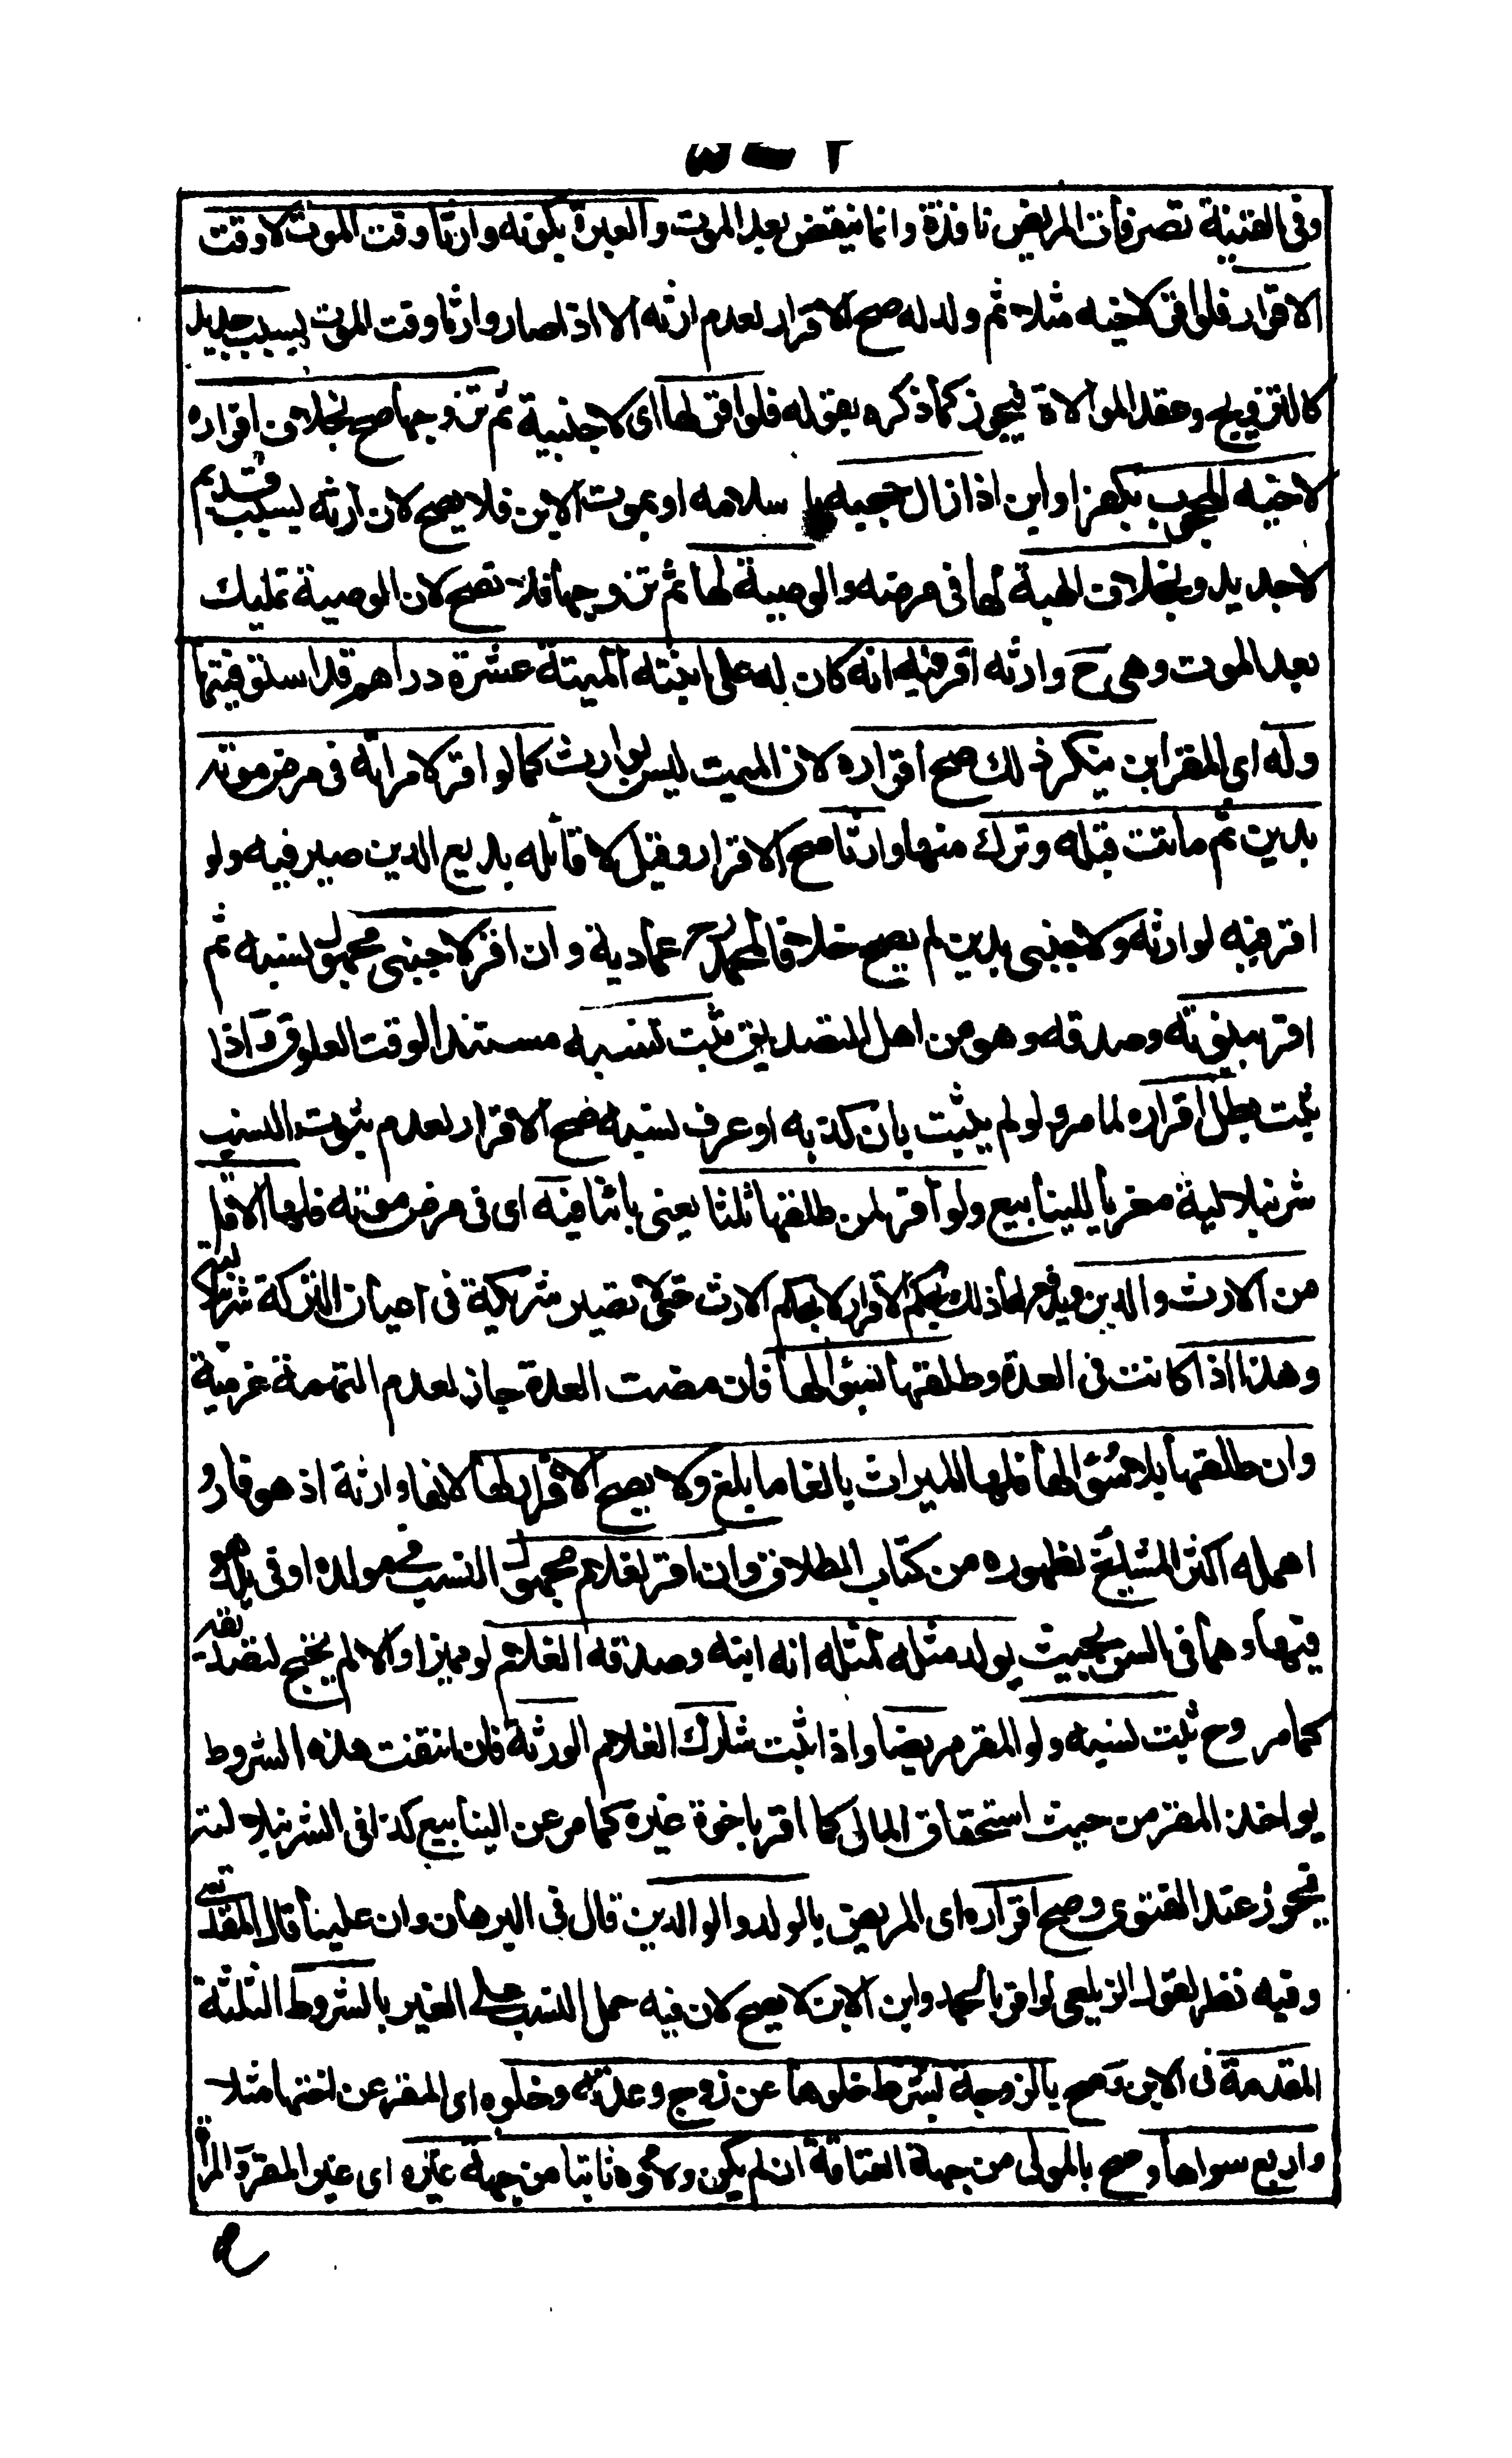 وفى القنية تصرفات المريض نافذة وانما ينقض بعد الموت والعبرة بكونه وارثا وقت الموت لا وقت
الاقرار فلو اقر لاخيه مثلا ثم ولد له صح الاقرار لعدم ارثه الا اذا صار وارثا وقت الموت بسبب جديد
كالتزويج وعقد الموالاة فيجوز كما ذكره بقوله فلو اقر لها اى لاجنبية ثم تزوجها صح بخلاف اقراره
لاخيه المحجوب بكفر او ابن اذا زال حجبه باسلامه او بموت الابن فلا يصح لان ارثه بسبب قديم
لا جديد وبخلاف الهبة لها فى مرضه والوصية لها ثم تزوجها فلا تصح لان الوصية تمليك
بعد الموت وهى ح وارثه اقر فيه انه كان له على ابنته الميتة عشرة دراهم قد استوفيتها
وله اى المقر ابن ينكر ذلك صح اقراره لان الميت ليس بوارث كما لو اقر لامراته فى مرض موته
بدين ثم ماتت قبله وترك منها وارثا صح الاقرار وقيل لا قائله بديع الدين صيرفيه ولو
اقر فيه لوارثه ولاجنبى بدين لم يصح خلافا لمحمد رح عمادية وان اقر لاجنبى مجهول نسبه ثم
اقر ببنوته وصدقه وهو من اهل التصديق ثبت نسبه مستندا لوقت العلوق و اذا
ثبت بطل اقراره لما مر ولو لم يثبت بان كذبه او عرف نسبه صح الاقرار لعدم ثبوت النسب
شرنبلالية معزيا للينابيع ولو اقر لمن طلقها ثلثا يعنى بائنا فيه اى فى مرض موته فلها الاقل
من الارث والدين ويدفع لها ذلك بحكم الاقرار لا بحكم الارث حتى لا تصير شريكة فى اعيان التركة شرنبلالية
وهذا اذا كانت فى العدة وطلقها بسؤالها فان مضت العدة جاز لعدم التهمة عزمية
وان طلقها بلا سؤالها فلها الميراث بالغا ما بلغ ولا يصح الاقرار لها لانها وارثة اذ هو فار و
اهمله اكثر المشايخ لظهوره من كتاب الطلاق وان اقر لغلام مجهول النسب فى مولده او فى بلد هو
فيها وهما فى السن بحيث يولد مثله لمثله انه ابنه وصدقه الغلام لو مميزا والا لم يحتج لتصديقه
كما مر وح ثبت نسبه ولو المقر مريضا واذا ثبت شارك الغلام الورثة فان انتفت هذه الشروط
يواخذ المقر من حيث استحقاق المال كما اقر باخوة غيره كما مر عن الينابيع كذا فى الشرنبلالية
فيحرر عند الفتوى وصح اقراره اى المريض بالولد والوالدين قال فى البرهان وان عليا قال المقدسى
وفيه نظر لقول الزيلعى لو اقر بالجد وابن الابن لا يصح لان فيه حمل النسب على الغير بالشروط الثلثة
المقدمة فى الابن وصح بالزوجة بشرط خلوها عن زوج وعدته وخلوه اى المقر عن اختها مثلا
واربع سواها وصح بالمولى من جهة العتاقة ان لم يكن ولاؤه ثابتا من جهة غيره اى غير المقر و المراة